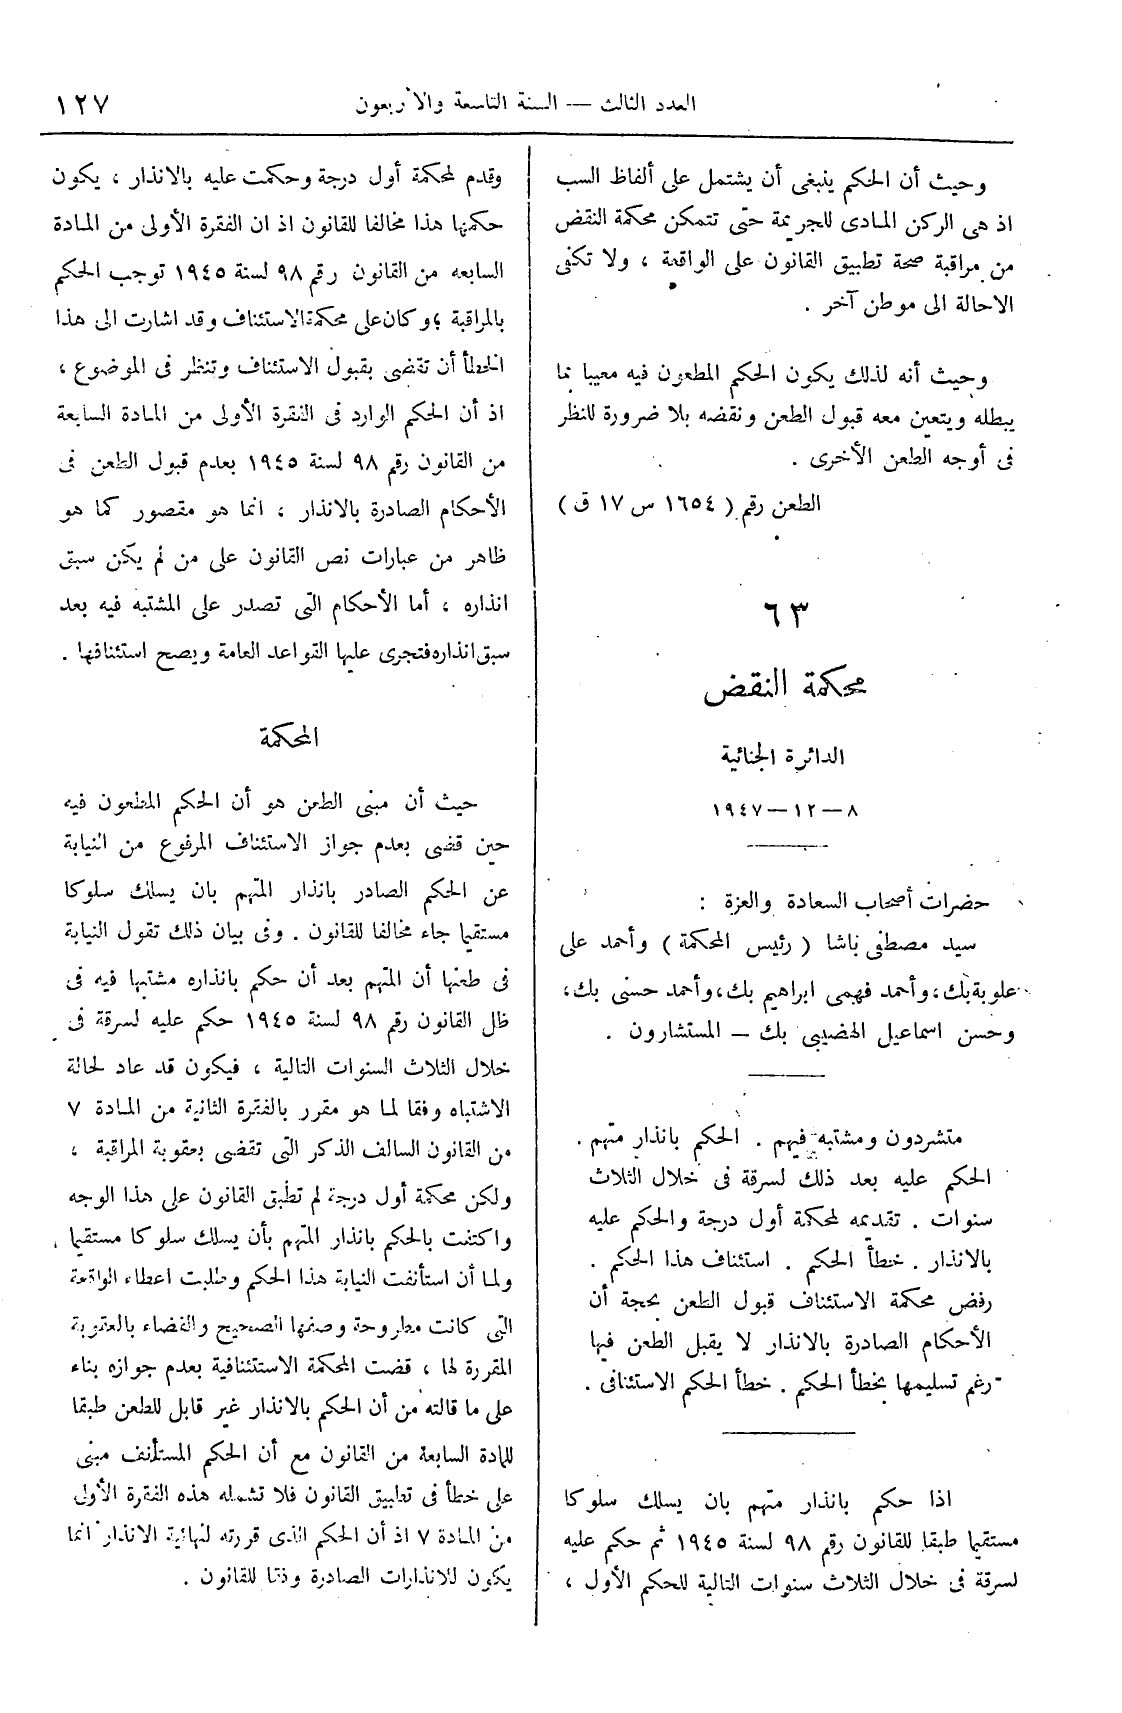 العدد الثالث — السنة التاسعة والأربعون
١٢٧
وحيث أن الحكم ينبغى أن يشتمل على ألفاظ السب
اذ هى الركن المادى للجريمة حتى تتمكن محكمة النقض
من مراقبة صحة تطبيق القانون على الواقعة ، ولا تكفى
الاحالة الى موطن آخر .
وحيث أنه لذلك يكون الحكم المطعون فيه معيبا بما
يبطله ويتعين معه قبول الطعن ونقضه بلا ضرورة للنظر
فى أوجه الطعن الأخرى .
الطعن رقم ( ١٦٥٤ س ١٧ ق )
٦٣
محكمة النقض
الدائرة الجنائية
٨ — ١٢ — ١٩٤٧
حضرات أصحاب السعادة والعزة :
سيد مصطفى باشا ( رئيس المحكمة ) وأحمد على
علوبة بك ، وأحمد فهمى ابراهيم بك ، وأحمد حسنى بك ،
وحسن اسماعيل الهضيبى بك — المستشارون .
متشردون ومشتبه فيهم . الحكم بانذار متهم .
الحكم عليه بعد ذلك لسرقة فى خلال الثلاث
سنوات . تقديمه لمحكمة أول درجة والحكم عليه
بالانذار . خطأ الحكم . استئناف هذا الحكم .
رفض محكمة الاستئناف قبول الطعن بحجة أن
الأحكام الصادرة بالانذار لا يقبل الطعن فيها
رغم تسليمها بخطأ الحكم . خطأ الحكم الاستئنافى .
اذا حكم بانذار متهم بان يسلك سلوكا
مستقيما طبقا للقانون رقم ٩٨ لسنة ١٩٤٥ ثم حكم عليه
لسرقة فى خلال الثلاث سنوات التالية للحكم الأول ،
وقدم لمحكمة أول درجة وحكمت عليه بالانذار ، يكون
حكمها هذا مخالفا للقانون اذ ان الفقرة الأولى من المادة
السابعه من القانون رقم ٩٨ لسنة ١٩٤٥ توجب الحكم
بالمراقبة ؛ وكان على محكمة الاستئناف وقد اشارت الى هذا
الخطأ أن تقضى بقبول الاستئناف وتنظر فى الموضوع ،
اذ أن الحكم الوارد فى الفقرة الأولى من المادة السابعة
من القانون رقم ٩٨ لسنة ١٩٤٥ بعدم قبول الطعن فى
الأحكام الصادرة بالانذار ، انما هو مقصور كما هو
ظاهر من عبارات نص القانون على من لم يكن سبق
انذاره ، أما الأحكام التى تصدر على المشتبه فيه بعد
سبق انذاره فتجرى عليها القواعد العامة ويصح استئنافها .
المحكمة
حيث أن مبنى الطعن هو أن الحكم المطعون فيه
حين قضى بعدم جواز الاستئناف المرفوع من النيابة
عن الحكم الصادر بانذار المتهم بان يسلك سلوكا
مستقيما جاء مخالفا للقانون . وفى بيان ذلك تقول النيابة
فى طعنها أن المتهم بعد أن حكم بانذاره مشتبها فيه فى
ظل القانون رقم ٩٨ لسنة ١٩٤٥ حكم عليه لسرقة فى
خلال الثلاث السنوات التالية ، فيكون قد عاد لحالة
الاشتباه وفقا لما هو مقرر بالفقرة الثانية من المادة ٧
من القانون السالف الذكر التى تقضى بعقوبة المراقبة ،
ولكن محكمة أول درجة لم تطبق القانون على هذا الوجه
واكتفت بالحكم بانذار المتهم بأن يسلك سلوكا مستقيما ،
ولما أن استأنفت النيابة هذا الحكم وطلبت اعطاء الواقعة
التى كانت مطروحة وصفها الصحيح والقضاء بالعقوبة
المقررة لها ، قضت المحكمة الاستئنافية بعدم جوازه بناء
على ما قالته من أن الحكم بالانذار غير قابل للطعن طبقا
للمادة السابعة من القانون مع أن الحكم المستأنف مبنى
على خطأ فى تطبيق القانون فلا تشمله هذه الفقرة الأولى
من المادة ٧ اذ أن الحكم الذى قررته لنهائية الانذار انما
يكون للانذارات الصادرة وفقا للقانون .